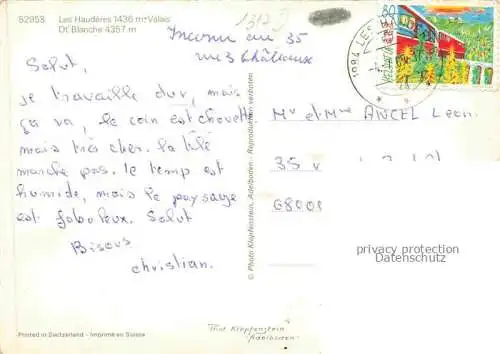 52958 Les Haudères 1436 m-Valais
Dt. Blanche 4357 m
Inconnu au 35
Salut,
je travaille dur, mais
ça va, le coin est chouette
mais très cher. la télé
marche pas. le temp est
humide, mais le paysage
est fabuleux. Salut
Bisous
christian.
© Photo Klopfenstein, Adelboden - Reproduction verboten
80
1984 LES HAUDÈRES
HELVETIA
Mr et Mme ANCEL Leon
35
68000
privacy protection
Datenschutz
Printed in Switzerland - Imprimé en Suisse
Photo Klopfenstein
Adelboden